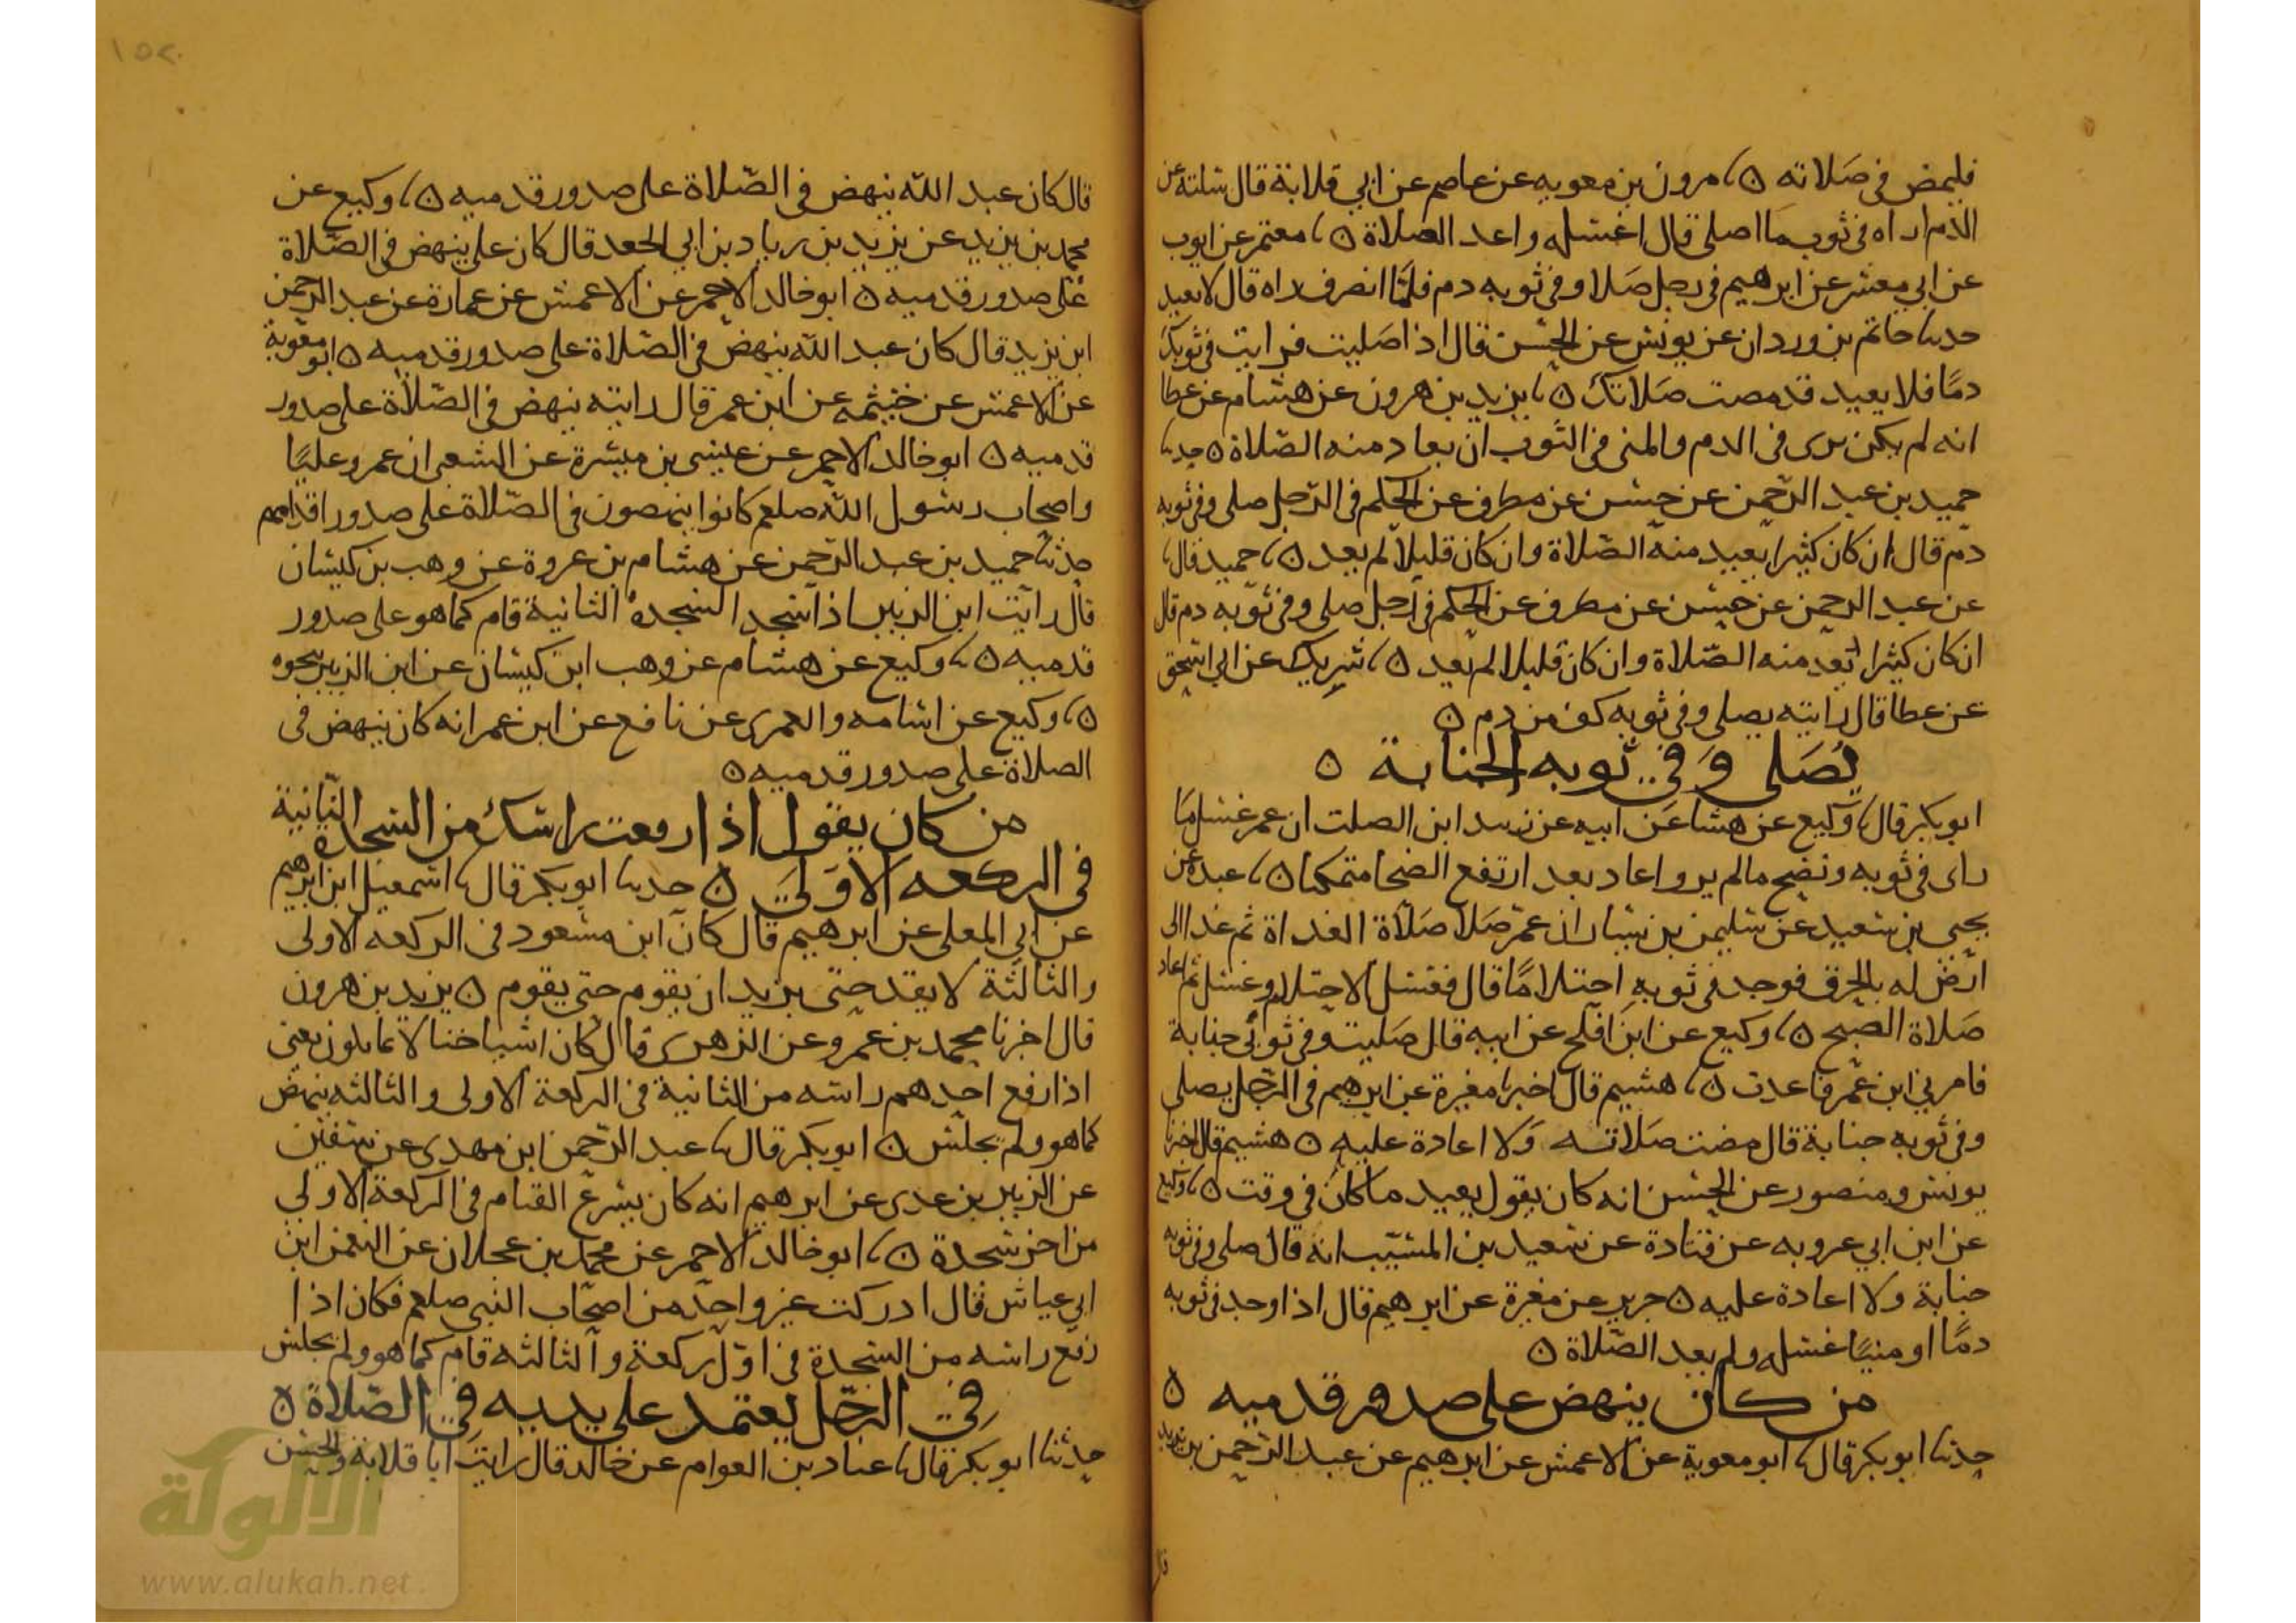 فليمض في صلاته ۞ مرون بن معويه عن عاصم عن ابي قلابة قال سلته عن
الدم اراه في ثوب ما اصلي قال اغسله واعد الصلاة ۞ معتمر عن ايوب
عن ابي معشر عن ابرهيم في رجل صلا وفي ثوبه دم فلما انصرف راه قال لا يعيد
حدثنا حاتم بن وردان عن يونس عن الحسن قال اذا صليت فرايت في ثوبك
دمًا فلا يعيد قد مصت صلاتك ۞ يزيد بن هرون عن هشام عن عطا
انه لم يكن يرى في الدم والمني في الثوب ان يعاد منه الصلاة ۞ حدثنا
حميد بن عبد الرحمن عن حسن عن مطرف عن الحكم في الرجل صلى وفي ثوبه
دم قال ان كان كثيرا يعيد منه الصلاة وان كان قليلا لم يعد ۞ حميد قال
عن عبد الرحمن عن حسن عن مطرف عن الحكم في رجل صلى وفي ثوبه دم قال
ان كان كثيرا يعد منه الصلاة وان كان قليلا لم يعد ۞ شريك عن ابي اسحق
عن عطا قال رايته يصلي وفي ثوبه كف من دم ۞
يُصَلي وَفي ثوبه الجنابة ۞
ابو بكر قال وكيع عن هشا عن ابيه عن زييد ابن الصلت ان عمر غسل ما
راى في ثوبه ونضح مالم ير واعاد بعد ارتفع الضحا متمكنا ۞ عبده عن
يحيى بن سعيد عن سليمن بن يسار ان عمر صلا صلاة الغداة ثم غدا الى
ارض له بالجرف فوجد في ثوبه احتلامًا قال فغسل الاحتلام وغسل ثم اعاد
صلاة الصبح ۞ وكيع عن ابن افلح عن ابيه قال صليت وفي ثوبي جنابة
فامرني ابن عمر فاعدت ۞ هشيم قال اخبرنا مغيرة عن ابرهيم في الرجل يصلي
وفي ثوبه جنابة قال مضت صلاته ولا اعادة عليه ۞ هشيم قال اخبرنا
يونس ومنصور عن الحسن انه كان يقول يعيد ما كان في وقت ۞ وكيع
عن ابن ابي عروبه عن قتادة عن سعيد بن المسيب انه قال صلى وفي ثوبه
جنابة ولا اعادة عليه ۞ جرير عن مغيرة عن ابرهيم قال اذا وجد في ثوبه
دمًا او منيًا غسله ولم يعد الصلاة ۞
من كان ينهض على صدور قدميه ۞
حدثنا ابو بكر قال ابو معوية عن الاعمش عن ابرهيم عن عبد الرحمن بن يزيد
قال
قال كان عبد الله ينهض في الصلاة على صدور قدميه ۞ وكيع عن
محمد بن يزيد عن يزيد بن زياد بن ابي الجعد قال كان علي ينهض في الصلاة
على صدور قدميه ۞ ابو خالد الاحمر عن الاعمش عن عمارة عن عبد الرحمن
ابن يزيد قال كان عبد الله ينهض في الصلاة على صدور قدميه ۞ ابو معوية
عن الاعمش عن خيثمه عن ابن عمر قال رايته ينهض في الصلاة على صدور
قدميه ۞ ابو خالد الاحمر عن عيسى بن ميسرة عن الشعبي ان عمر وعليًا
واصحاب رسول الله صلعم كانوا ينهصون في الصلاة على صدور اقدامهم
حدثنا حميد بن عبد الرحمن عن هشام بن عروة عن وهب بن كيسان
قال رايت ابن الزبير اذا سجد السجدة الثانية قام كما هو على صدور
قدميه ۞ وكيع عن هشام عن وهب ابن كيسان عن ابن الزبير بنحوه
۞ وكيع عن اسامه والعمرى عن نافع عن ابن عمر انه كان ينهض في
الصلاة على صدور قدميه ۞
من كان يقول اذا رفعت راسك من السجدة الثانية
في الركعه الاولى ۞ حدثنا ابو بكر قال اسمعيل ابن ابرهيم
عن ابي المعلى عن ابرهيم قال كان ابن مسعود في الركعه الاولى
والثالثة لا يقعد حتى يريد ان يقوم حتى يقوم ۞ يزيد بن هرون
قال اخبرنا محمد بن عمرو عن الزهرى قال كان اشياخنا لا يمايلون يعني
اذا رفع احدهم راسه من الثانية في الركعة الاولى والثالثه ينهض
كما هو ولم يجلس ۞ ابو بكر قال عبد الرحمن ابن مهدى عن سفين
عن الزبير بن عدى عن ابرهيم انه كان يسرع القيام في الركعة الاولى
من اخر سجدة ۞ ابو خالد الاحمر عن محمد بن عجلان عن النعمن ابن
ابي عياش قال ادركت غير واحد من اصحاب النبي صلعم فكان اذا
رفع راسه من السجدة في اول ركعة والثالثه قام كما هو ولم يجلس
في الرجل يعتمد على يديه في الصلاة ۞
حدثنا ابو بكر قال عباد بن العوام عن خالد قال رايت ابا قلابة والحسن
الألوكة
www.alukah.net